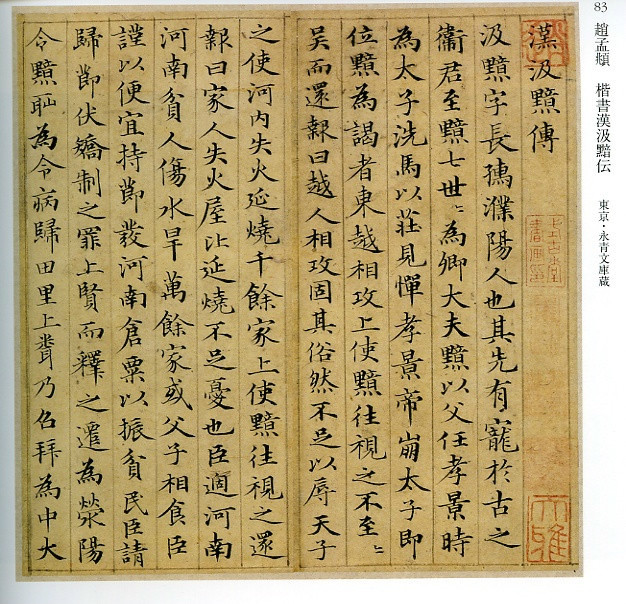 83 趙孟頫 楷書漢汲黯伝 東京・永青文庫蔵
漢汲黯傳
汲黯字長孺濮陽人也其先有寵於古之
衞君至黯七世〻為卿大夫黯以父任孝景時
為太子洗馬以莊見憚孝景帝崩太子即
位黯為謁者東越相攻上使黯往視之不至〻
吴而還報曰越人相攻固其俗然不足以辱天子
之使河内失火延燒千餘家上使黯往視之還
報曰家人失火屋比延燒不足憂也臣適河南
河南貧人傷水旱萬餘家或父子相食臣
謹以便宜持節發河南倉粟以振貧民臣請
歸節伏矯制之罪上賢而釋之遷為滎陽
令黯恥為令病歸田里上聞乃召拜為中大
大雅